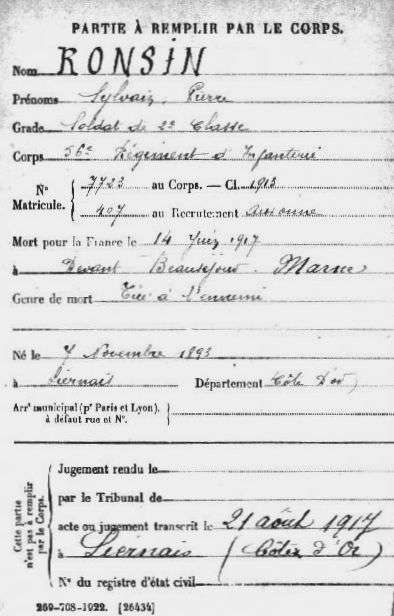 PARTIE À REMPLIR PAR LE CORPS.
Nom RONSIN
Prénoms Sylvain, Pierre
Grade Soldat de 2e Classe
Corps 56e Régiment d'Infanterie
N° Matricule. { 7723 au Corps. — Cl. 1913
407 au Recrutement Auxonne
Mort pour la France le 14 Juin 1917
à Devant Beauséjour. Marne
Genre de mort Tué à l'ennemi
Né le 7 Novembre 1893
à Liernais Département Côte D'or
Arr' municipal (p' Paris et Lyon), à défaut rue et N°.
Cette partie n'est pas à remplir par le Corps.
Jugement rendu le
par le Tribunal de
acte ou jugement transcrit le 21 août 1917
à Liernais (Côte d'Or)
N° du registre d'état civil
269-708-1922. [26434]